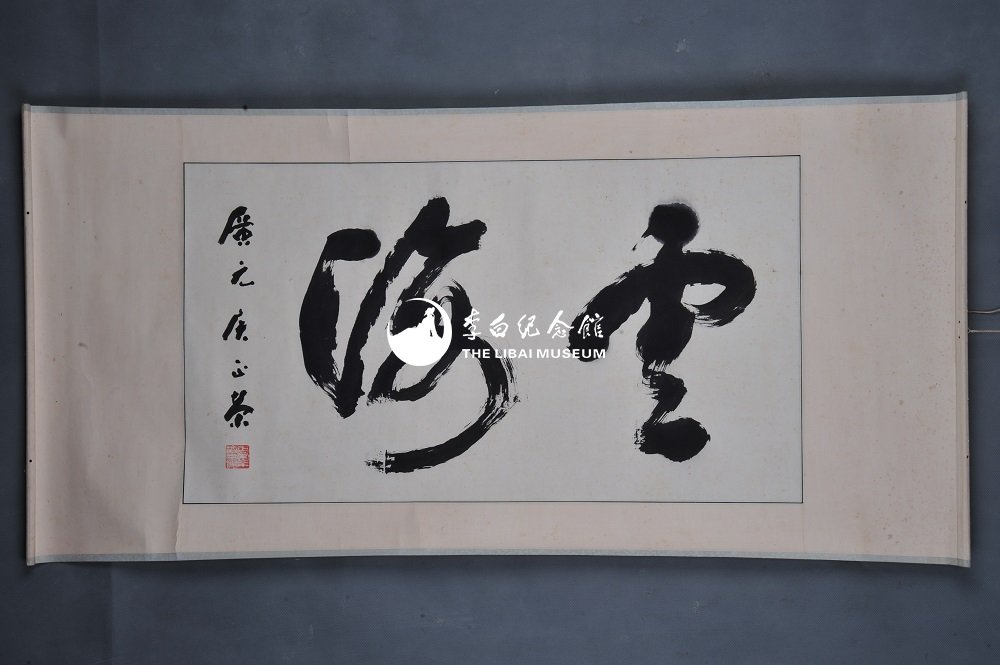 雲海
廣元唐正榮
李白纪念館
THE LIBAI MUSEUM